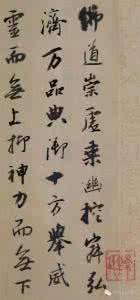 佛道崇虛乘幽控寂弘
濟万品典御十方舉威
靈而無上抑神力而無下